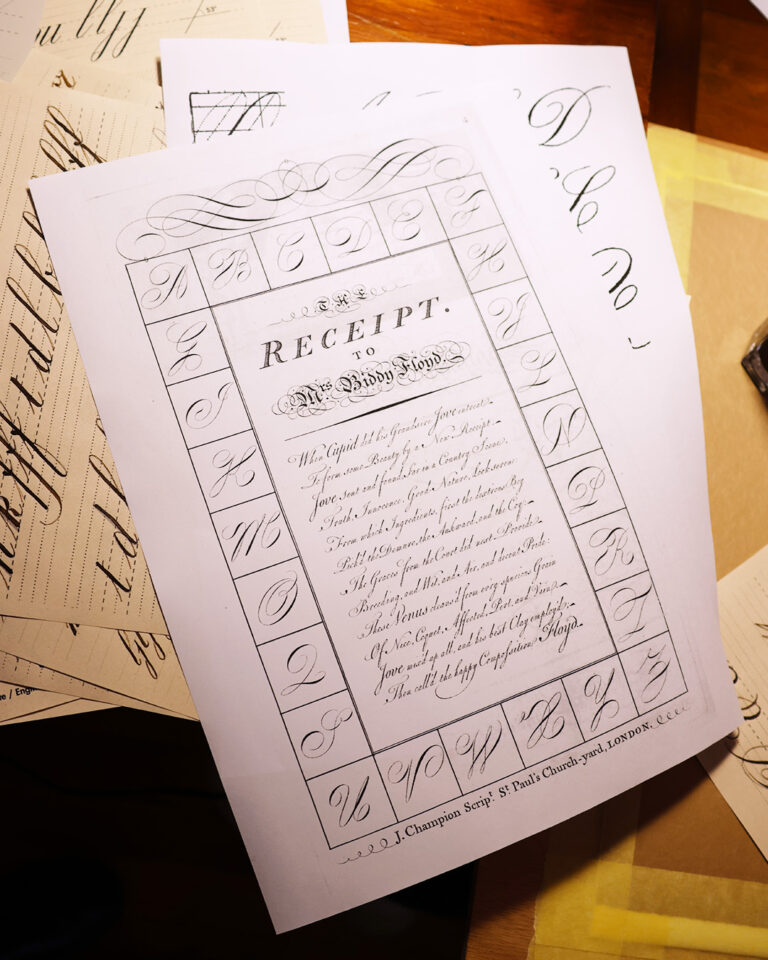 A B C D E F
G H
I J
K L
M N
O P
Q R
S T
U V W X Y Z
THE
RECEIPT.
TO
Mrs. Biddy Floyd.
When Cupid did his Grandsire Jove intreat
To form some Beauty by a New Receipt,
Jove sent and found, far in a Country Scene,
Truth, Innocence, Good Nature, Look serene:
From which Ingredients, first the dextrous Boy
Pick'd the Demure, the Awkward, and the Coy.
The Graces from the Court did next Provide
Breeding, and Wit, and Air, and decent Pride:
These Venus cleans'd from every spurious Grain
Of Nice, Coquet, Affected, Pert, and Vain.
Jove mix'd up all, and his best Clay employ'd;
Then call'd the happy Composition Floyd.
J. Champion Script. St. Paul's Church-yard, LONDON.
D